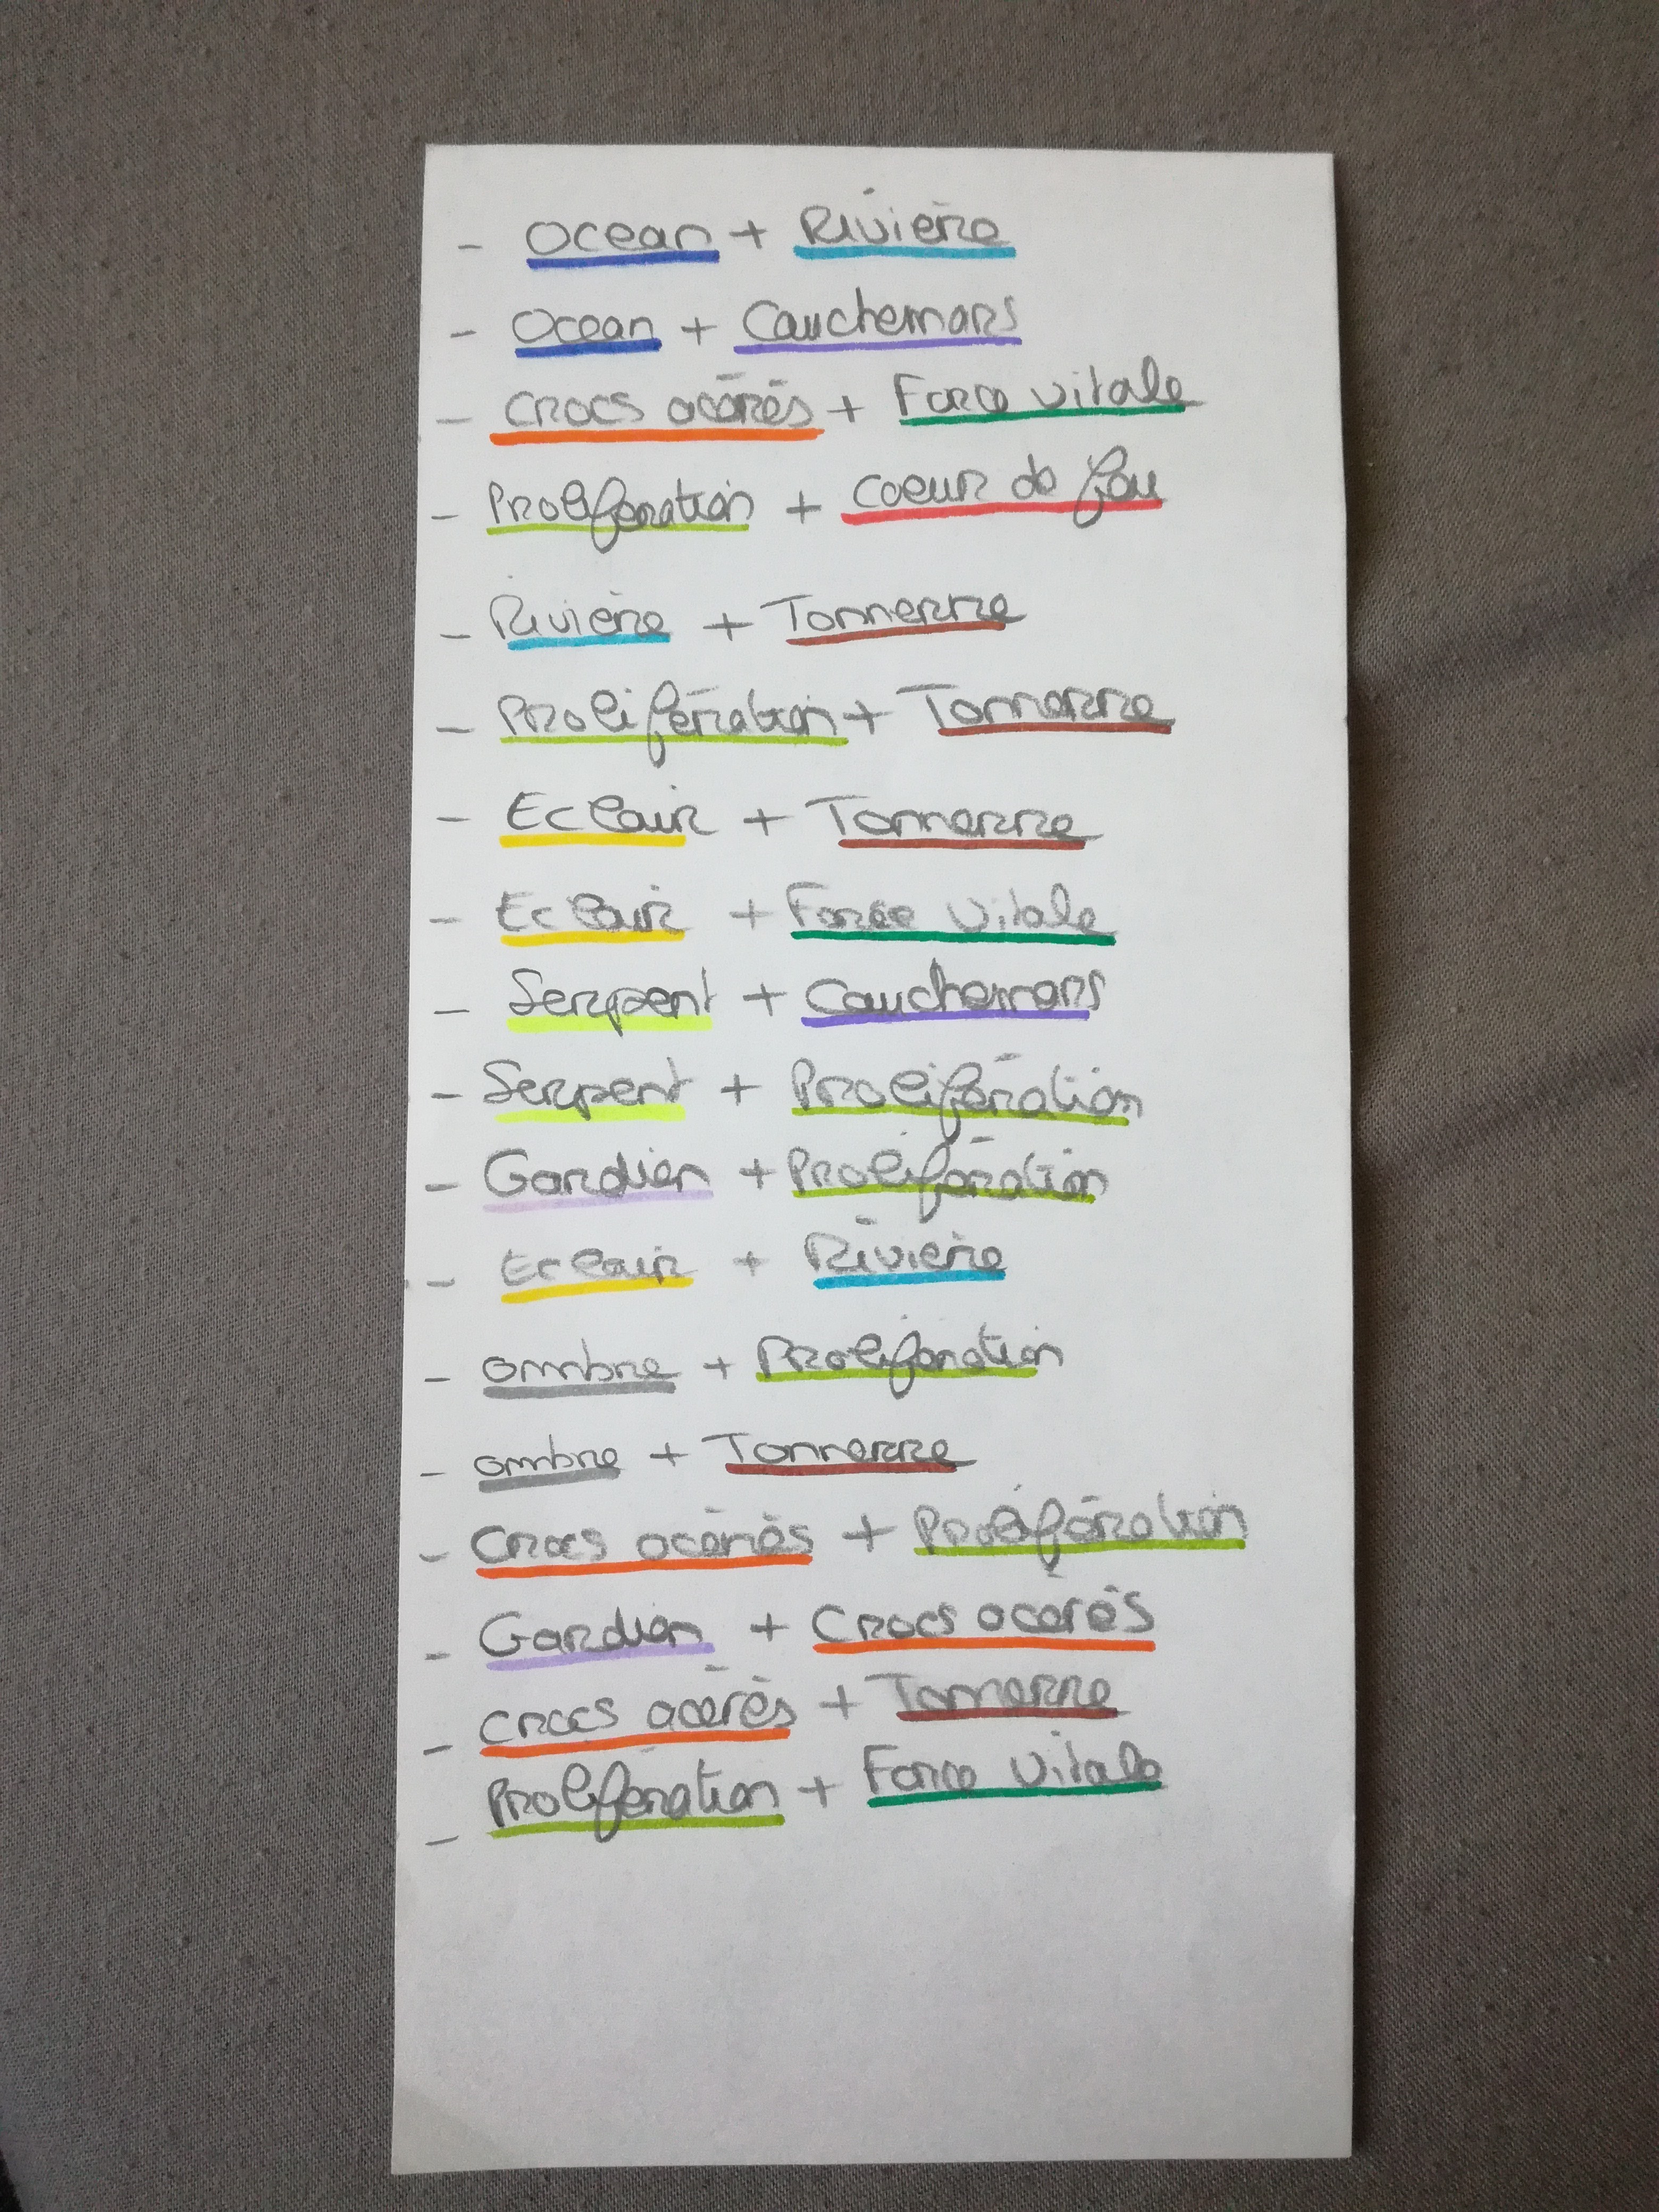 - Ocean + Rivière
- Ocean + Cauchemars
- Crocs acérés + Force vitale
- Prolifération + Coeur de feu
- Rivière + Tonnerre
- Prolifération + Tonnerre
- Eclair + Tonnerre
- Eclair + Force vitale
- Serpent + Cauchemars
- Serpent + Prolifération
- Gardien + Prolifération
- Eclair + Rivière
- ombre + Prolifération
- ombre + Tonnerre
- Crocs acérés + Prolifération
- Gardien + Crocs acérés
- Crocs acérés + Tonnerre
- Prolifération + Force vitale